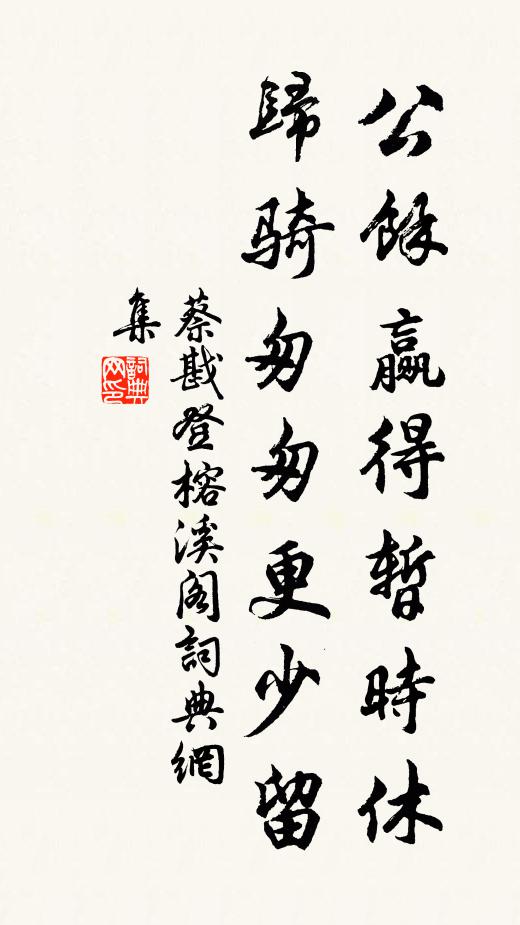 公餘贏得暫時休
歸騎匆匆更少留
蔡戡登榕溪閣詞典網
集
詞典
网印